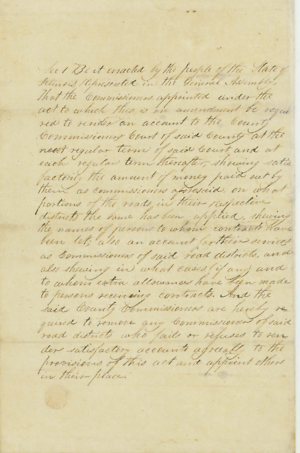 Sec 1 Be it enacted by the people of the State of
Illinois represented in the General Assembly
that the Commissioners appointed under the
act to which this is an amendment be requi
red to render an account to the County
Commissioners Court of said County at the
next regular term of said Court and at
each regular term thereafter, showing satis
factory the amount of money paid out by
them as commissioners aforesaid, on what
portions of the roads, in their respective
districts the same has been applied, shewing
the names of persons to whom contracts have
been let, also an account for their services
as Commissioners of said road districts, and
also shewing in what cases (if any) and
to whom extra allowances have been made
to persons receiving contracts. And the
said County Commissioners are hereby re
quired to remove any Commissioner of said
road districts who fails or refuses to ren
der satisfactory accounts agreeably to the
provisions of this act and appoint others
in their place